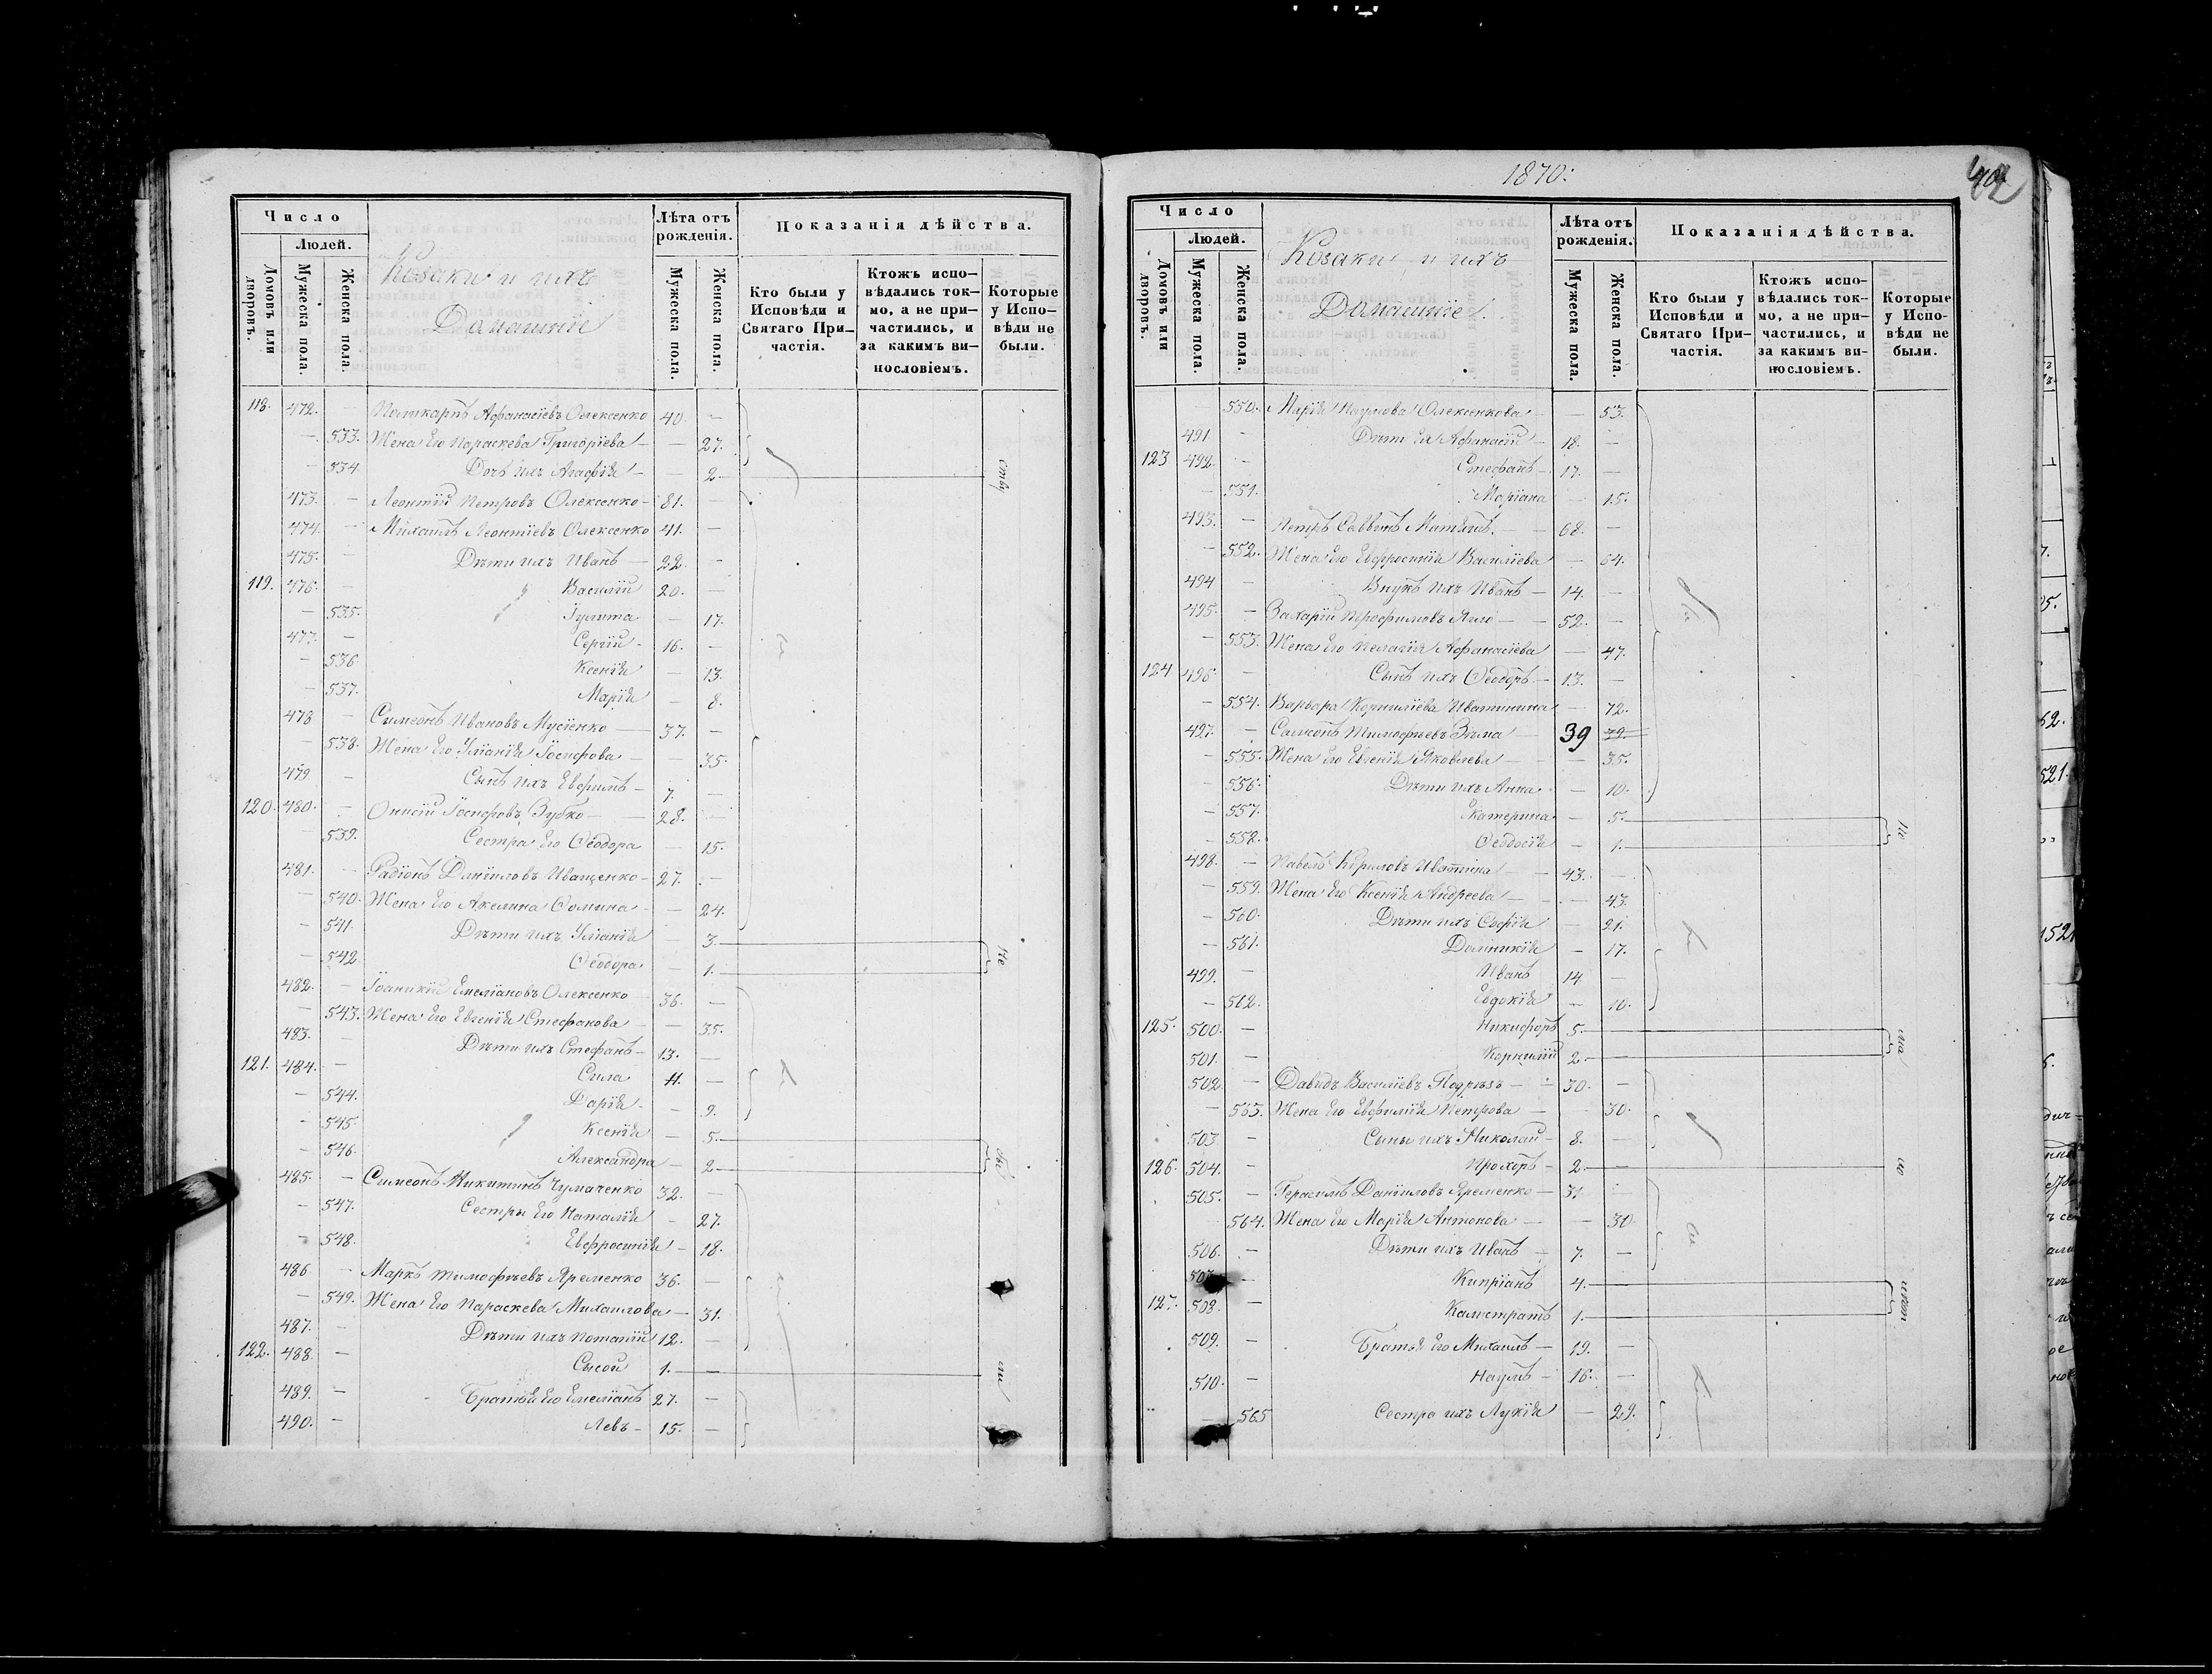 Число
Людей.
Домовъ или дворовъ.
Мужеска пола.
Женска пола.
Козаки и ихъ
Домашніе
Лѣта отъ рожденія.
Мужеска пола.
Женска пола.
Показанія дѣйства.
Кто были у Исповѣди и Святаго Причастія.
Ктожъ исповѣдались токмо, а не причастились, и за какимъ винословіемъ.
Которые у Исповѣди не были.
118. 472. — Поликарпъ Афанасіевъ Олексенко 40 —
— 533. Жена Его Параскева Григоріева — — 27.
— 534 Дочь ихъ Агафія — — 2
473. — Леонтій Петровъ Олексенко — 81. —
474. — Михаилъ Леонтіевъ Олексенко 41. —
475. — Дѣти ихъ Иванъ — 22. —
119. 476. — Василій 20. —
— 535. Іулитта — 17.
477. — Сергій — 16. —
— 536 Ксенія — 13.
— 537. Марія — 8.
478 — Симеонъ Ивановъ Мусіенко — 37. —
— 538. Жена Его Уліанія Іосифова — — 35.
479 — Сынъ ихъ Евфимъ — 7. —
120. 480. — Онисій Іосифовъ Зубко — 28. —
— 539. Сестра Его Ѳеодора — 15.
481. — Радіонъ Даніиловъ Иващенко — 27. —
— 540. Жена Его Акелина Ѳомина — — 24.
— 541. Дѣти ихъ Уліанія — 3.
— 542 Ѳеодора — 1.
Не
482. — Іоаникій Емеліановъ Олексенко 36. —
— 543. Жена Его Евгенія Стефанова — — 35.
483. — Дѣти ихъ Стефанъ — 13. —
121. 484. — Сила 11. —
— 544. Дарія — — 9.
— 545. Ксенія — 5.
— 546. Александра — 2
485. — Симеонъ Никитинъ Чумаченко 32. —
— 547. Сестры Его Наталія — 27.
— 548. Евфросинія — 18.
486 — Марко Тимофѣевъ Яременко 36. —
— 549. Жена Его Параскева Михаилова — 31.
487. — Дѣти ихъ Потапій 12. —
122. 488. — Сысой 1. —
489. — Братья Его Емеліанъ 27. —
490. — Левъ — 15. —
1870:
Число
Людей.
Домовъ или дворовъ.
Мужеска пола.
Женска пола.
Козаки и ихъ
Домашніе.
Лѣта отъ рожденія.
Мужеска пола.
Женска пола.
Показанія дѣйства.
Кто были у Исповѣди и Святаго Причастія.
Ктожъ исповѣдались токмо, а не причастились, и за какимъ винословіемъ.
Которые у Исповѣди не были.
— 550. Марія Наумова Олексенкова — — 53.
491 — Дѣти Ея Афанасій — 18. —
123 492. — Стефанъ — 17. —
— 551. Маріана — 15.
493. — Петръ Саввинъ — 68. —
— 552. Жена Его Евфросинія Василіева — 64.
494 — Внукъ ихъ Иванъ — 14. —
495. — Захарій Трофимовъ — 52. —
— 553. Жена Его Пелагія Афанасіева — 47.
124 496. — Сынъ ихъ Ѳеодоръ — 13. —
— 554. Варвара Корниліева — 72.
497. — Самсонъ Тимофѣевъ Зима — 39
— 555. Жена Его Евгенія Яковлева — — 35.
— 556. Дѣти ихъ Анна — 10.
— 557. Екатерина — 5.
— 558. Ѳеодосія — 1.
Не
498. — Павелъ Кириловъ — 43. —
— 559. Жена Его Ксенія Андреева — — 43.
— 560. Дѣти ихъ Софія — 21.
— 561. Домникія — 17.
499. — Иванъ 14 —
— 562. Евдокія — 10.
125. 500. — Никифоръ 5. —
501. — Корнилій 2. —
502. — Давидъ Василіевъ Подрѣзъ — 30. —
— 563. Жена Его Евфимія Петрова — 30.
503 — Сыны ихъ Николай — 8. —
126. 504. — Прохоръ — 2. —
505. — Герасимъ Даніиловъ Яременко — 31 —
— 564. Жена Его Марія Антонова — — 30
506. — Дѣти ихъ Иванъ — 7. —
507 — Кипріанъ 4. —
127. 508. — Калистратъ 1. —
509. — Братья Его Михаилъ — 19. —
510. — Наумъ — 16. —
— 565 Сестра ихъ Лукія — 29.